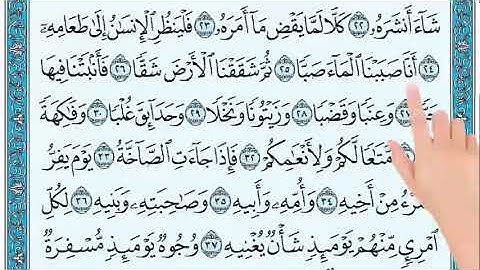 شَآءَ أَنشَرَهُۥ ٢٢ كَلَّا لَمَّا يَقْضِ مَآ أَمَرَهُۥ ٢٣ فَلْيَنظُرِ ٱلْإِنسَٰنُ إِلَىٰ طَعَامِهِۦٓ
٢٤ أَنَّا صَبَبْنَا ٱلْمَآءَ صَبًّا ٢٥ ثُمَّ شَقَقْنَا ٱلْأَرْضَ شَقًّا ٢٦ فَأَنۢبَتْنَا فِيهَا
٢٧ وَعِنَبًا وَقَضْبًا ٢٨ وَزَيْتُونًا وَنَخْلًا ٢٩ وَحَدَآئِقَ غُلْبًا ٣٠ وَفَٰكِهَةً
مَّتَٰعًا لَّكُمْ وَلِأَنْعَٰمِكُمْ ٣٢ فَإِذَا جَآءَتِ ٱلصَّآخَّةُ ٣٣ يَوْمَ يَفِرُّ
مِنْ أَخِيهِ ٣٤ وَأُمِّهِۦ وَأَبِيهِ ٣٥ وَصَٰحِبَتِهِۦ وَبَنِيهِ ٣٦ لِكُلِّ
ٱمْرِئٍ مِّنْهُمْ يَوْمَئِذٍ شَأْنٌ يُغْنِيهِ ٣٧ وُجُوهٌ يَوْمَئِذٍ مُّسْفِرَةٌ